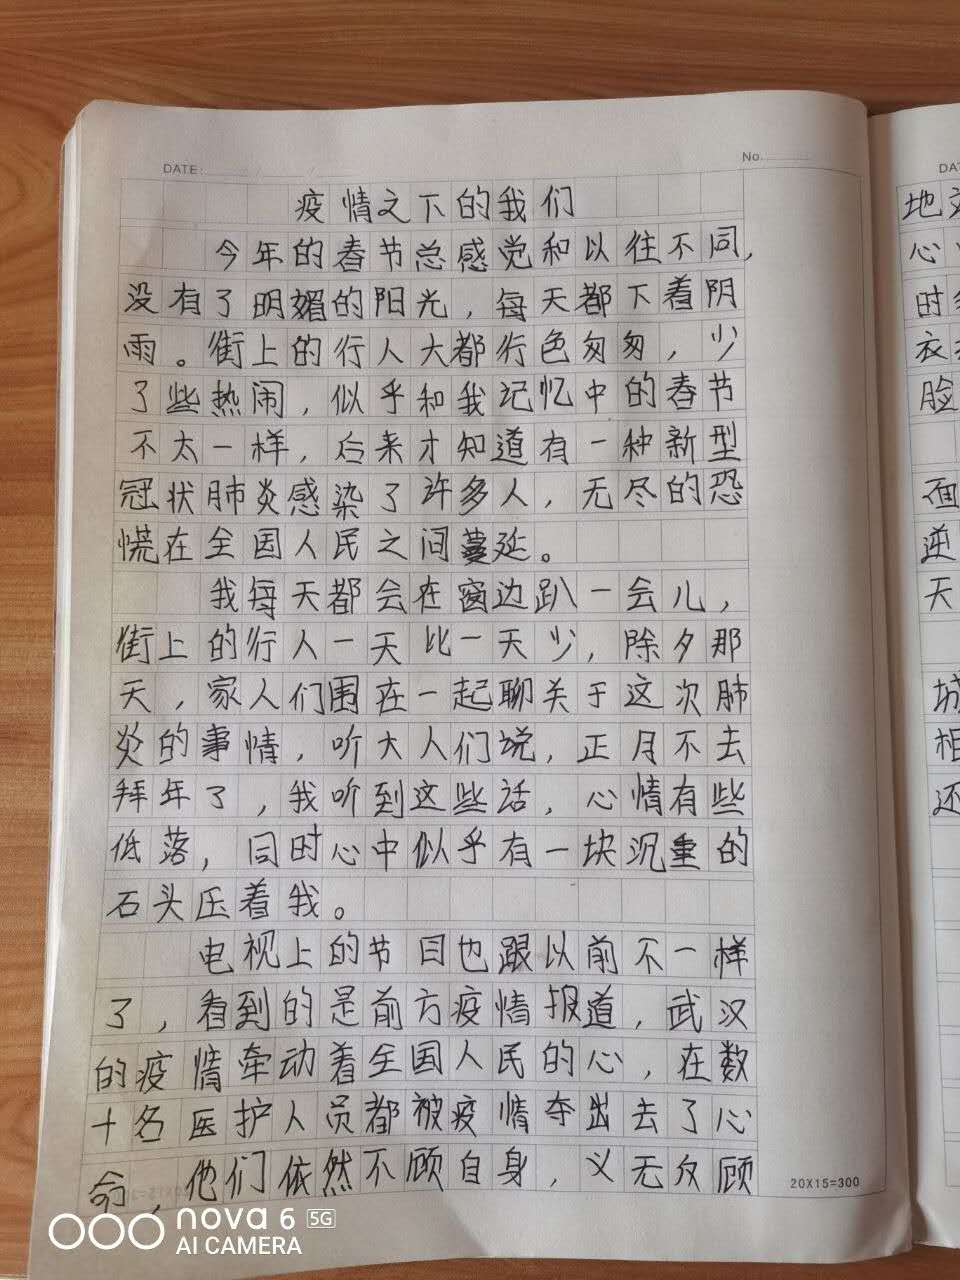 DATE:
No.
疫情之下的我们
今年的春节总感觉和以往不同,
没有了明媚的阳光，每天都下着阴
雨。街上的行人大都行色匆匆，少
了些热闹，似乎和我记忆中的春节
不太一样，后来才知道有一种新型
冠状肺炎感染了许多人，无尽的恐
慌在全国人民之间蔓延。
我每天都会在窗边趴一会儿，
街上的行人一天比一天少，除夕那
天，家人们围在一起聊关于这次肺
炎的事情，听大人们说，正月不去
拜年了，我听到这些话，心情有些
低落，同时心中似乎有一块沉重的
石头压着我。
电视上的节目也跟以前不一样
了，看到的是前方疫情报道，武汉
的疫情牵动着全国人民的心，在数
十名医护人员都被疫情夺出去了心
命，他们依然不顾自身，义无反顾
20X15=300
DAT
地
心
时
衣
脸
面
逆
天
城
相
还
nova 6 5G
AI CAMERA